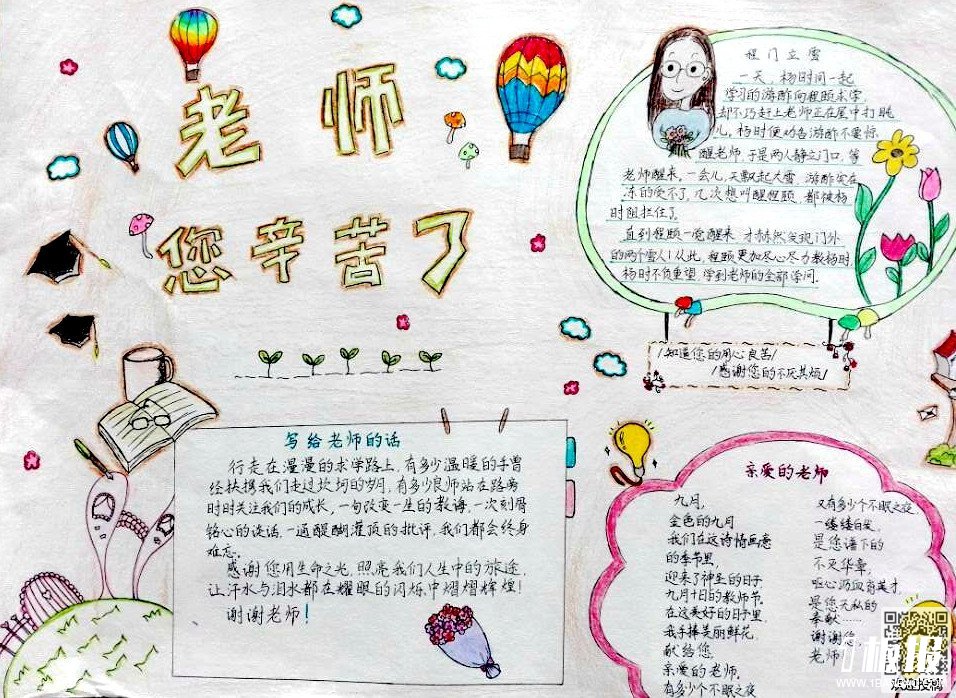 老师
您辛苦了
程门立雪
一天，杨时同一起
学习的游酢向程颐求学，
却不巧赶上老师正在屋中打盹
儿，杨时便劝告游酢不要惊
醒老师，于是两人静立门口，等
老师醒来，一会儿，天飘起大雪，游酢实在
冻的受不了，几次想叫醒程颐，都被杨
时阻拦住了
直到程颐一觉醒来，才赫然发现门外
的两个雪人！从此，程颐更加尽心尽力教杨时，
杨时不负重望，学到老师的全部学问.
知道您的用心良苦
感谢您的不厌其烦
写给老师的话
行走在漫漫的求学路上，有多少温暖的手曾
经扶携我们走过坎坷的岁月，有多少良师站在路旁
时时关注我们的成长，一句改变一生的教诲，一次刻骨
铭心的谈话，一遍醍醐灌顶的批评，我们都会终身
难忘。
感谢您用生命之光，照亮我们人生中的旅途，
让汗水与泪水都在耀眼的闪烁中熠熠辉煌！
谢谢老师！
亲爱的老师
九月，
金色的九月
我们在这诗情画意
的季节里，
迎来了神圣的日子
九月十日的教师节，
在这美好的日子里
我手捧美丽鲜花，
献给您
亲爱的老师.
有多少个不眠之夜
又有多少个不眠之夜
一缕缕白发，
是您谱下的
不灭华章，
呕心沥血育英才，
是您无私的
奉献……
谢谢您，
老师